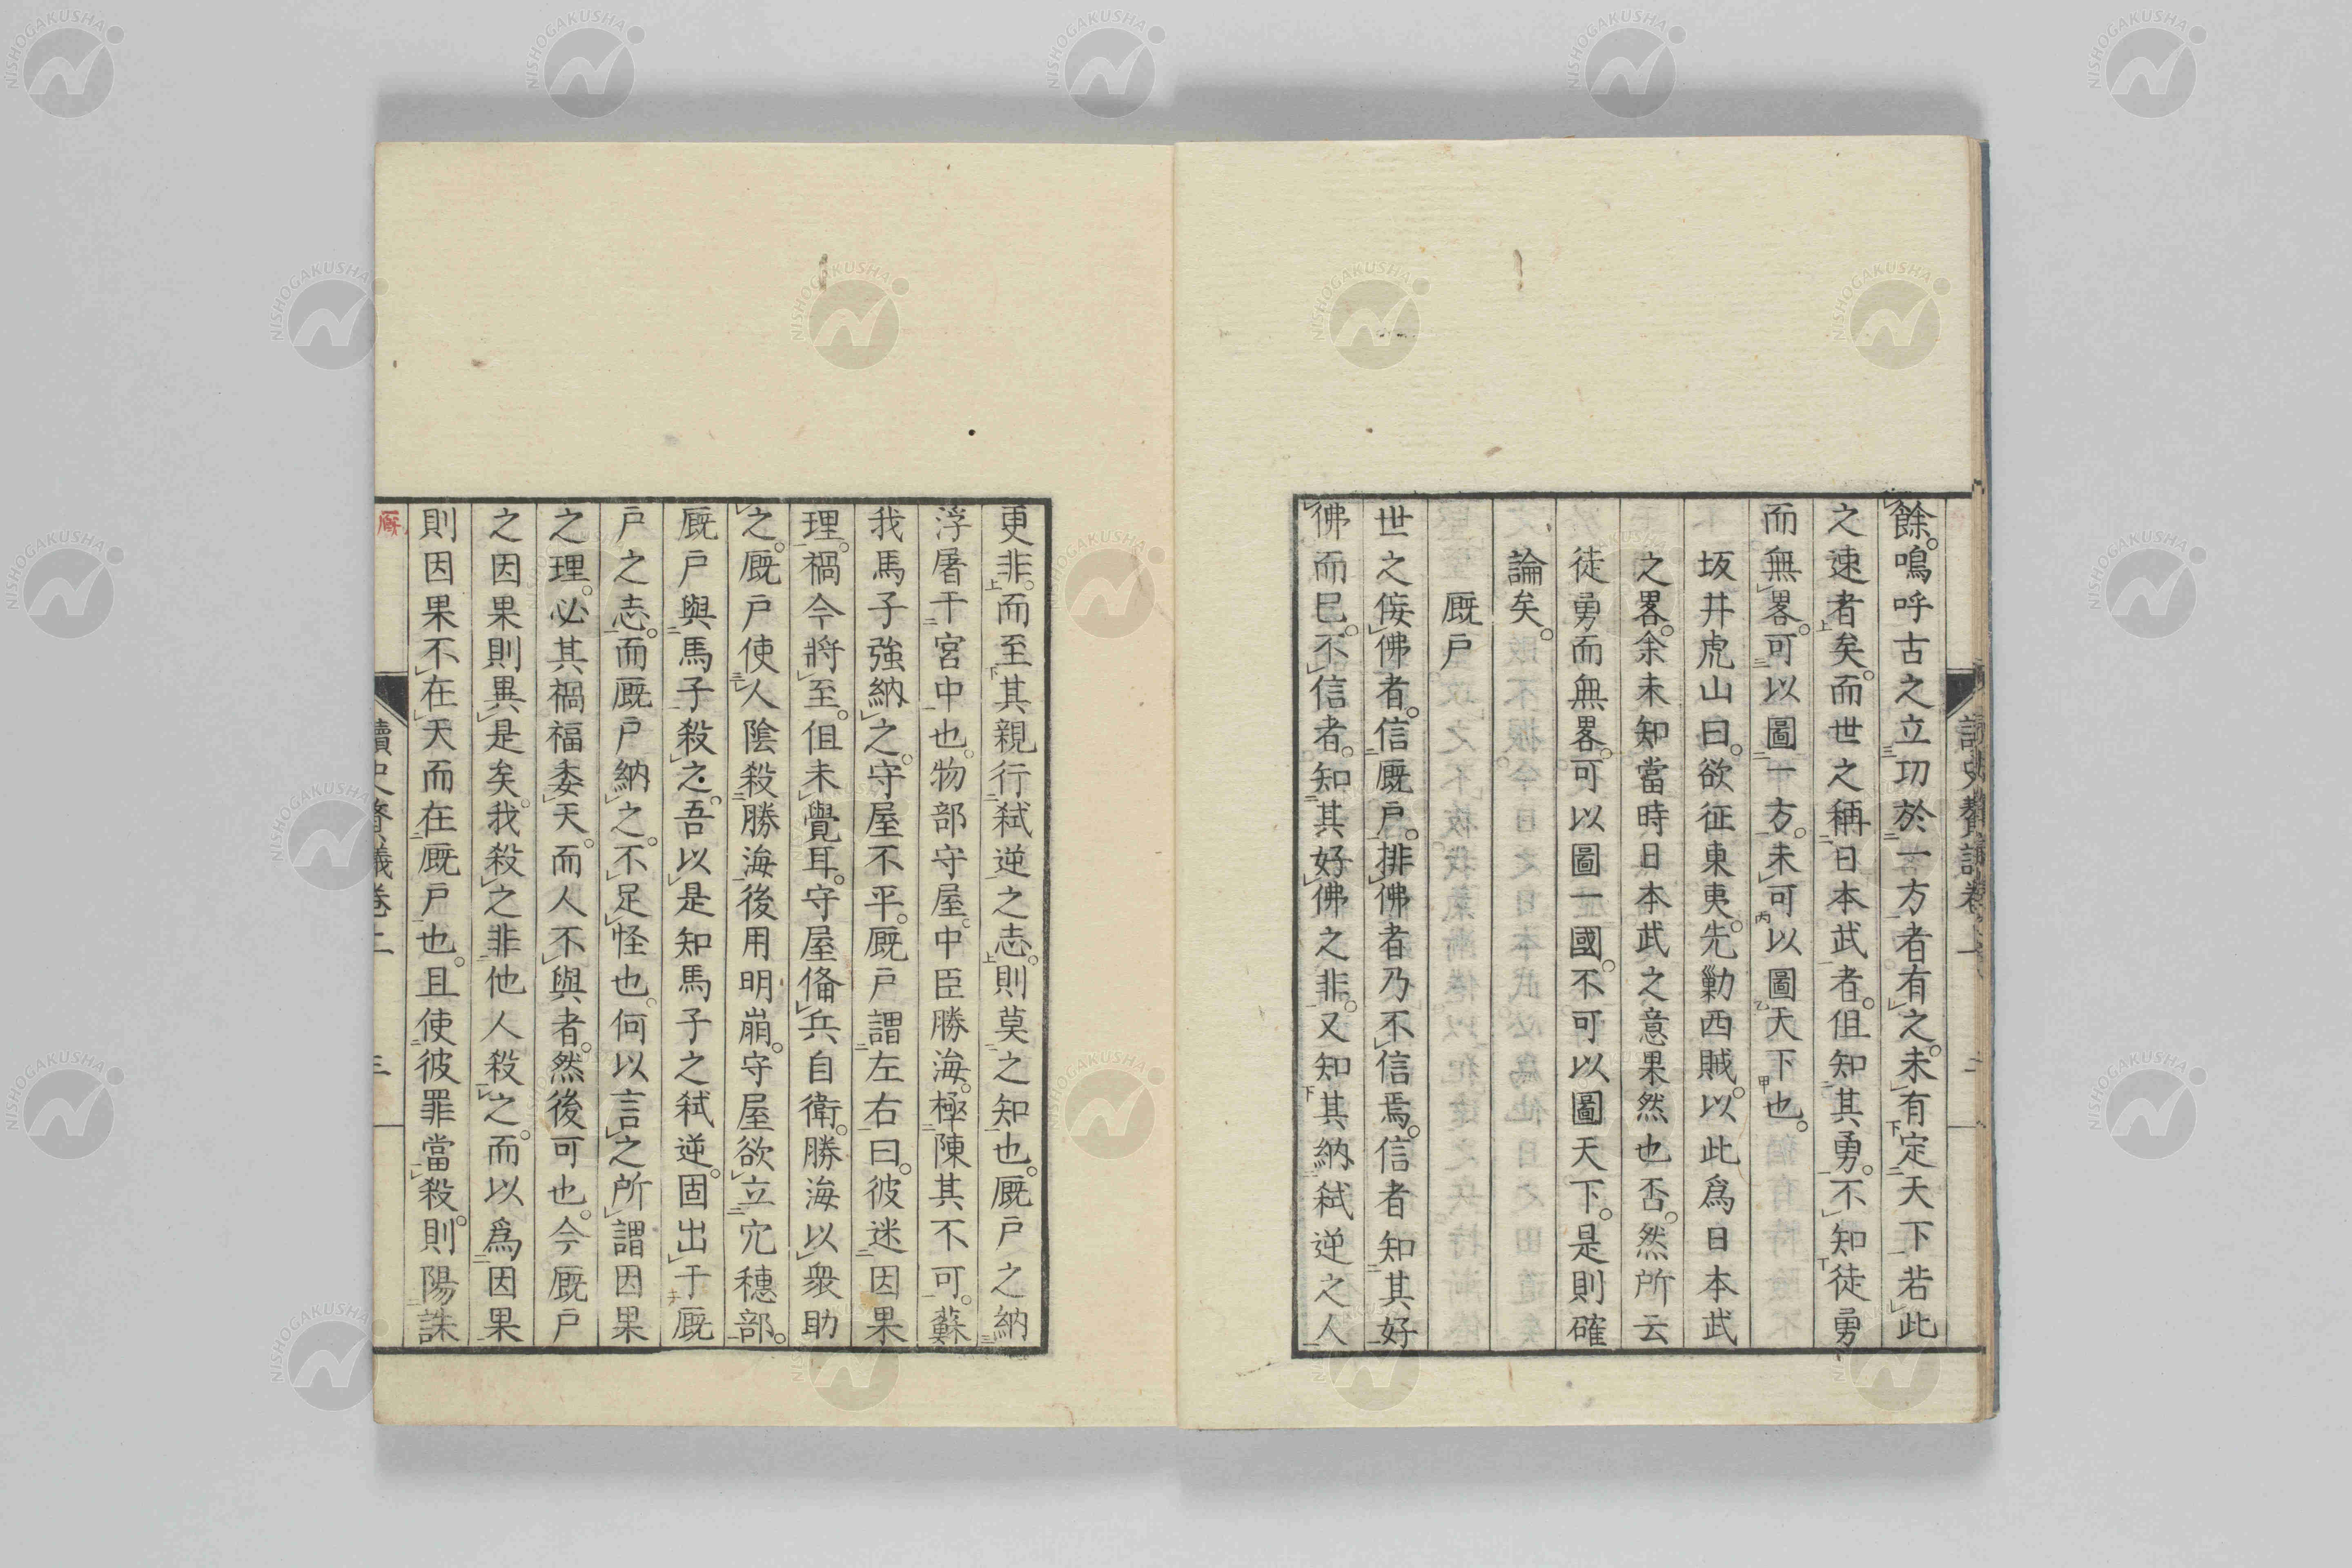 餘。嗚呼古之立功於一方者有之。未有定天下若此
之速者矣。而世之稱日本武者。但知其勇。不知徒勇
而無畧。可以圖一方。未可以圖天下也。
坂井虎山曰。欲征東夷。先勦西賊。以此爲日本武
之畧。余未知當時日本武之意果然也否。然所云
徒勇而無畧。可以圖一國。不可以圖天下。是則確
論矣。
厩戸
世之佞佛者。信厩戸。排佛者乃不信焉。信者知其好
佛而已。不信者。知其好佛之非。又知其納弑逆之人
更非。而至其親行弑逆之志。則莫之知也。厩戸之納
浮屠于宮中也。物部守屋。中臣勝海。極陳其不可。蘇
我馬子強納之。守屋不平。厩戸謂左右曰。彼迷因果
理。禍今將至。但未覺耳。守屋備兵自衛。勝海以衆助
之。厩戸使人陰殺勝海後用明崩。守屋欲立穴穗部。
厩戸與馬子殺之。吾以是知馬子之弑逆。固出于厩
戸之志。而厩戸納之。不足怪也。何以言之所謂因果
之理。必其禍福委天。而人不與者。然後可也。今厩戸
之因果則異是矣。我殺之非他人殺之。而以爲因果
則因果不在天而在厩戸也。且使彼罪當殺。則陽誅
讀史贅議卷二
三